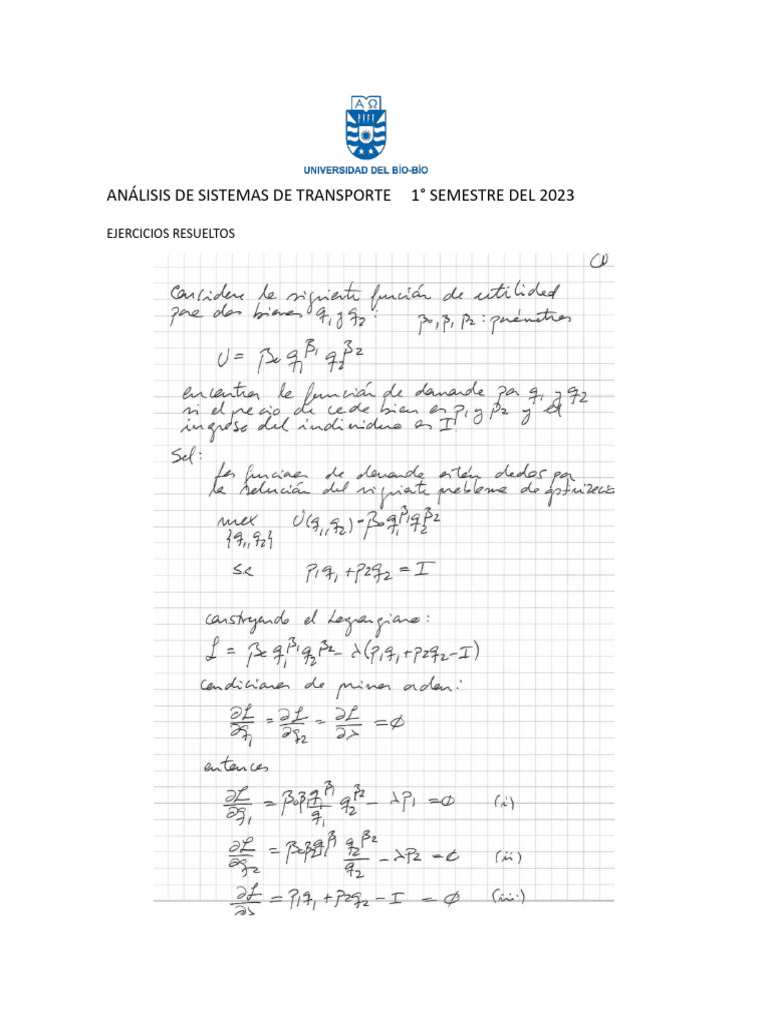 ΑΩ
UNIVERSIDAD DEL BÍO-BÍO
ANÁLISIS DE SISTEMAS DE TRANSPORTE 1° SEMESTRE DEL 2023
EJERCICIOS RESUELTOS
Considere la siguiente función de utilidad
para dos bienes q₁ y q₂: β₀, β₁, β₂: parámetros
U = β₀ q₁^β₁ q₂^β₂
encontrar la función de demanda por q₁ y q₂
si el precio de cada bien es p₁ y p₂ y el
ingreso del individuo es I.
Sol:
Las funciones de demanda están dadas por
la solución del siguiente problema de
max U(q₁, q₂) = β₀ q₁^β₁ q₂^β₂
{q₁, q₂}
sa p₁q₁ + p₂q₂ = I
construyendo el Lagrangiano:
ℒ = β₀ q₁^β₁ q₂^β₂ - λ(p₁q₁ + p₂q₂ - I)
condiciones de primer orden:
∂ℒ/∂q₁ = ∂ℒ/∂q₂ = ∂ℒ/∂λ = 0
entonces
∂ℒ/∂q₁ = β₀β₁ q₁^β₁/q₁ q₂^β₂ - λp₁ = 0 (i)
∂ℒ/∂q₂ = β₀β₂ q₁^β₁ q₂^β₂/q₂ - λp₂ = 0 (ii)
∂ℒ/∂λ = p₁q₁ + p₂q₂ - I = 0 (iii)